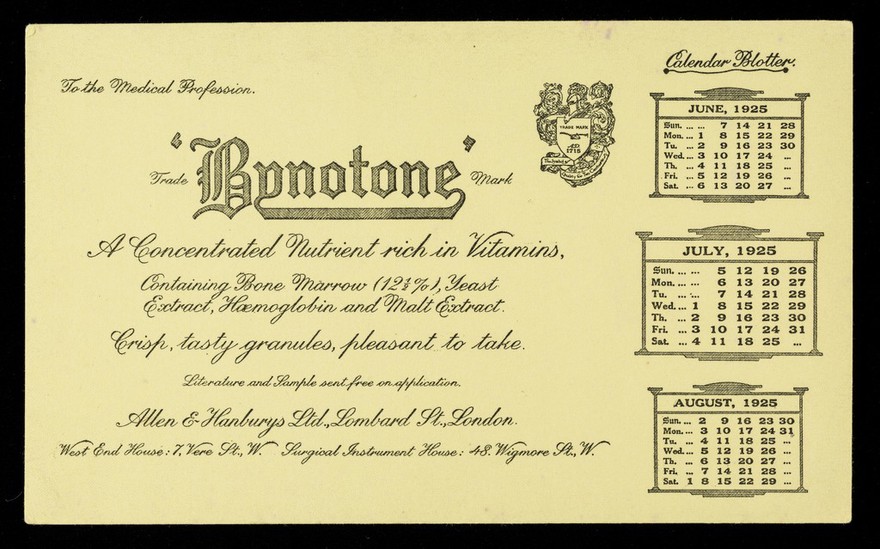 To the Medical Profession.
Trade 'Bynotone' Mark
A Concentrated Nutrient rich in Vitamins,
Containing Bone Marrow (12½%), Yeast
Extract, Hæmoglobin and Malt Extract.
Crisp, tasty granules, pleasant to take.
Literature and Sample sent free on application.
Allen & Hanburys Ltd., Lombard St., London.
West End House: 7, Vere St., W. Surgical Instrument House: 48, Wigmore St., W.
TRADE MARK
ED
1715
Calendar Blotter.
JUNE, 1925
Sun. ... ... 7 14 21 28
Mon. ... 1 8 15 22 29
Tu. ... 2 9 16 23 30
Wed. ... 3 10 17 24 ...
Th. ... 4 11 18 25 ...
Fri. ... 5 12 19 26 ...
Sat. ... 6 13 20 27 ...
JULY, 1925
Sun. ... ... 5 12 19 26
Mon. ... ... 6 13 20 27
Tu. ... ... 7 14 21 28
Wed. ... 1 8 15 22 29
Th. ... 2 9 16 23 30
Fri. ... 3 10 17 24 31
Sat. ... 4 11 18 25 ...
AUGUST, 1925
Sun. ... 2 9 16 23 30
Mon. ... 3 10 17 24 31
Tu. ... 4 11 18 25 ...
Wed. ... 5 12 19 26 ...
Th. ... 6 13 20 27 ...
Fri. ... 7 14 21 28 ...
Sat. 1 8 15 22 29 ...